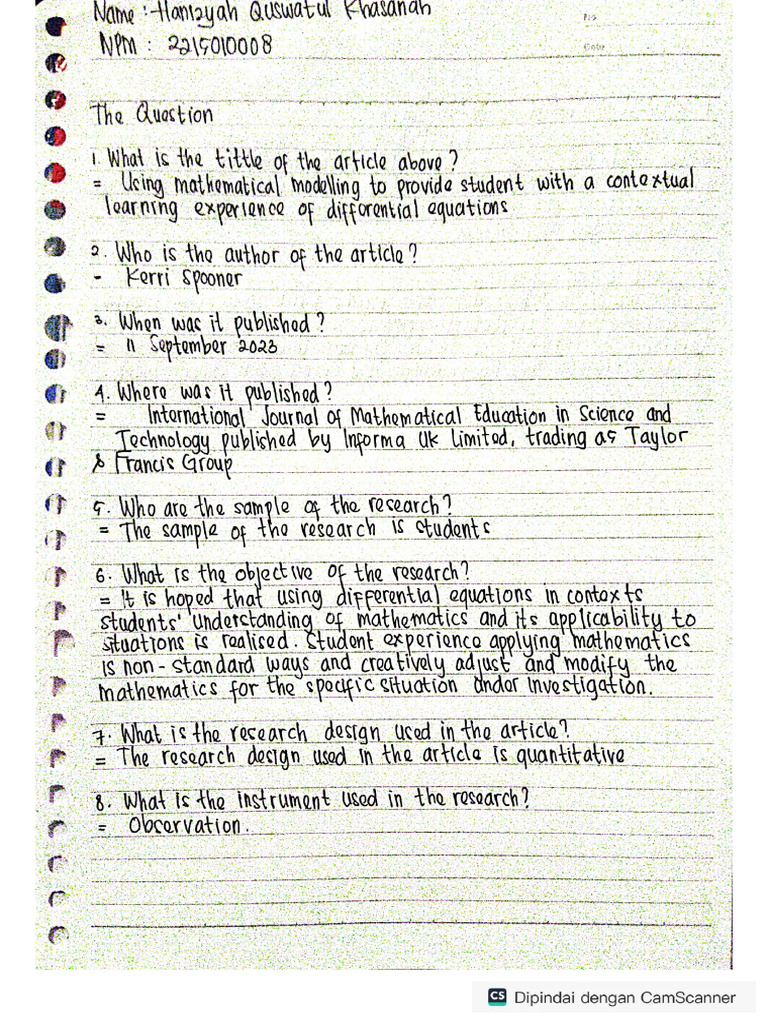 Name : Hanizyah Quswatul Khasanah
NPM : 2215010008
No
Date
The Question
1. What is the tittle of the article above ?
= Using mathematical modelling to provide student with a contextual
learning experience of differential equations
2. Who is the author of the article ?
- Kerri Spooner
3. When was it published ?
= 11 September 2023
4. Where was it published ?
= International Journal of Mathematical Education in Science and
Technology published by Informa UK Limited, trading as Taylor
& Francis Group
5. Who are the sample of the research ?
= The sample of the research is students
6. What is the objective of the research?
= It is hoped that using differential equations in contexts
students' understanding of mathematics and its applicability to
situations is realised. Student experience applying mathematics
is non - standard ways and creatively adjust and modify the
mathematics for the specific situation under investigation.
7. What is the research design used in the article?
= The research design used in the article is quantitative
8. What is the instrument used in the research?
= Observation.
CS Dipindai dengan CamScanner